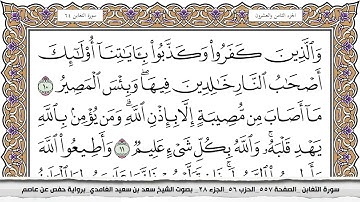 الجزء الثامن والعشرون
سورة التغابن ٦٤
وَالَّذِينَ كَفَرُوا وَكَذَّبُوا بِآيَاتِنَا أُولَٰئِكَ
أَصْحَابُ النَّارِ خَالِدِينَ فِيهَا ۖ وَبِئْسَ الْمَصِيرُ ١٠
مَا أَصَابَ مِن مُّصِيبَةٍ إِلَّا بِإِذْنِ اللَّهِ ۗ وَمَن يُؤْمِن بِاللَّهِ
يَهْدِ قَلْبَهُ ۚ وَاللَّهُ بِكُلِّ شَيْءٍ عَلِيمٌ ١١ وَأَطِيعُوا اللَّهَ
سورة التغابن _الصفحة ٥٥٧_الحزب ٥٦_الجزء ٢٨_ بصوت الشيخ سعد بن سعيد الغامدي_برواية حفص عن عاصم